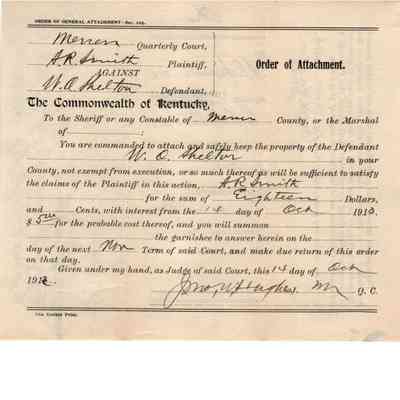 ORDER OF GENERAL ATTACHMENT—Sec. 105.
Mercer Quarterly Court,
A.R. Smith Plaintiff,
AGAINST
W.O. Shelton Defendant,
Order of Attachment.
The Commonwealth of Kentucky,
To the Sheriff or any Constable of Mercer County, or the Marshal
of ;
You are commanded to attach and safely keep the property of the Defendant
W. O. Shelton in your
County, not exempt from execution, or so much thereof as will be sufficient to satisfy
the claims of the Plaintiff in this action, A R Smith
for the sum of Eighteen Dollars,
and Cents, with interest from the 14 day of Oct 191
$ 5.00 for the probable cost thereof, and you will summon
the garnishee to answer herein on the
day of the next Nov Term of said Court, and make due return of this order
on that day.
Given under my hand, as Judge of said Court, this 14 day of Oct
191
Jno. W. Hughes Q. C.
Print.